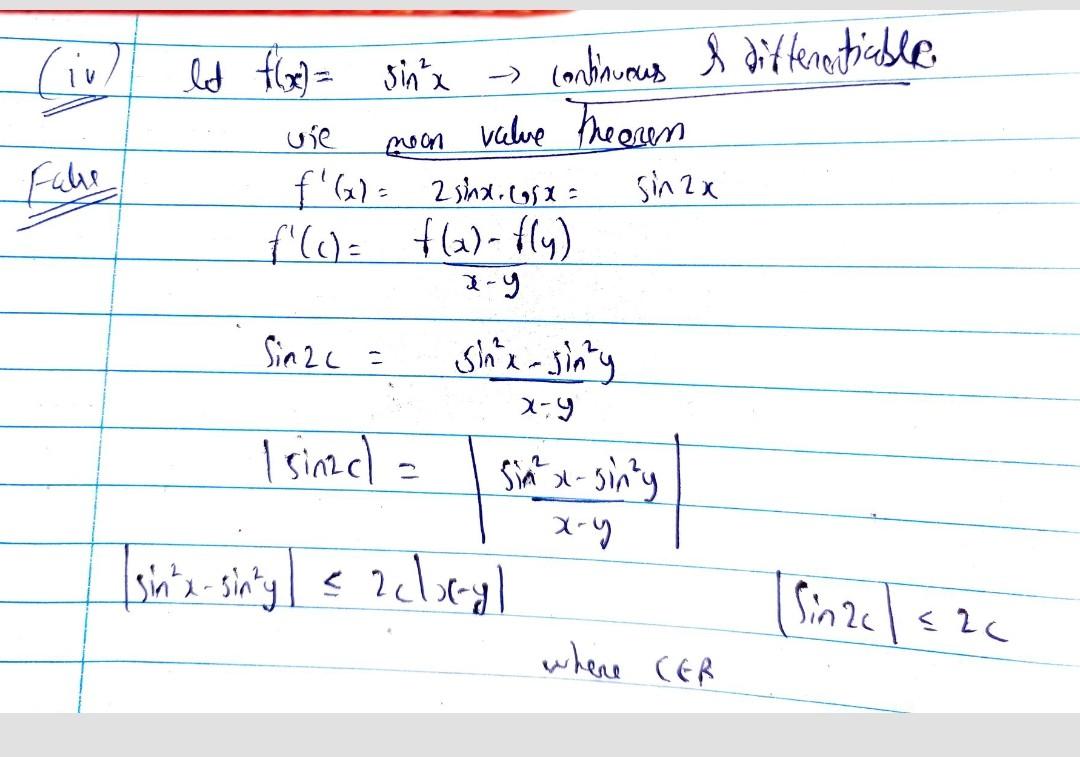 (iv) let f(x) = sin²x → continuous & differentiable.
use mean value theorem
False f'(x) = 2 sinx.cosx = sin2x
f'(c) = f(x) - f(y) / x-y
Sin2c = sin²x - sin²y / x-y
|sin2c| = | sin²x - sin²y / x-y |
|sin²x - sin²y| ≤ 2c|x-y| |Sin2c| ≤ 2c
where CER